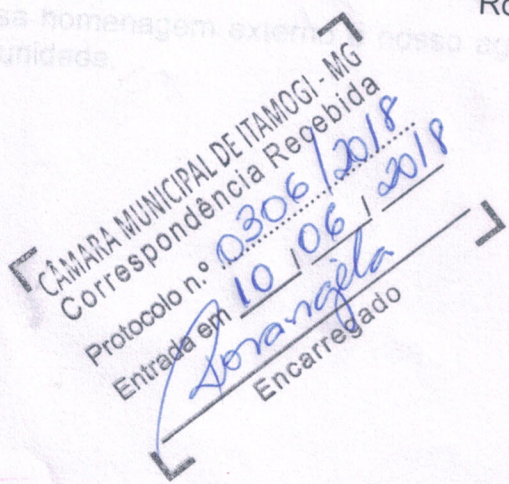 Ro
sa homenagem externo o nosso ag
unidade.
CÂMARA MUNICIPAL DE ITAMOGI - MG
Correspondência Recebida
Protocolo n.º 0306/2018
Entrada em 10 / 06 / 2018
Rosangela
Encarregado